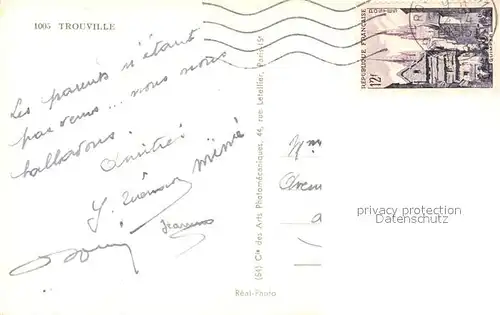 1005 TROUVILLE
Les parents n'étant
pas venus... nous nous
balladons.
Amitiés
Mimie
(64) Cie des Arts Photomécaniques, 44, rue Letellier, Paris-15e
Réal-Photo
RÉPUBLIQUE FRANÇAISE
POSTES
12f
QUIMPER
privacy protection
watermark